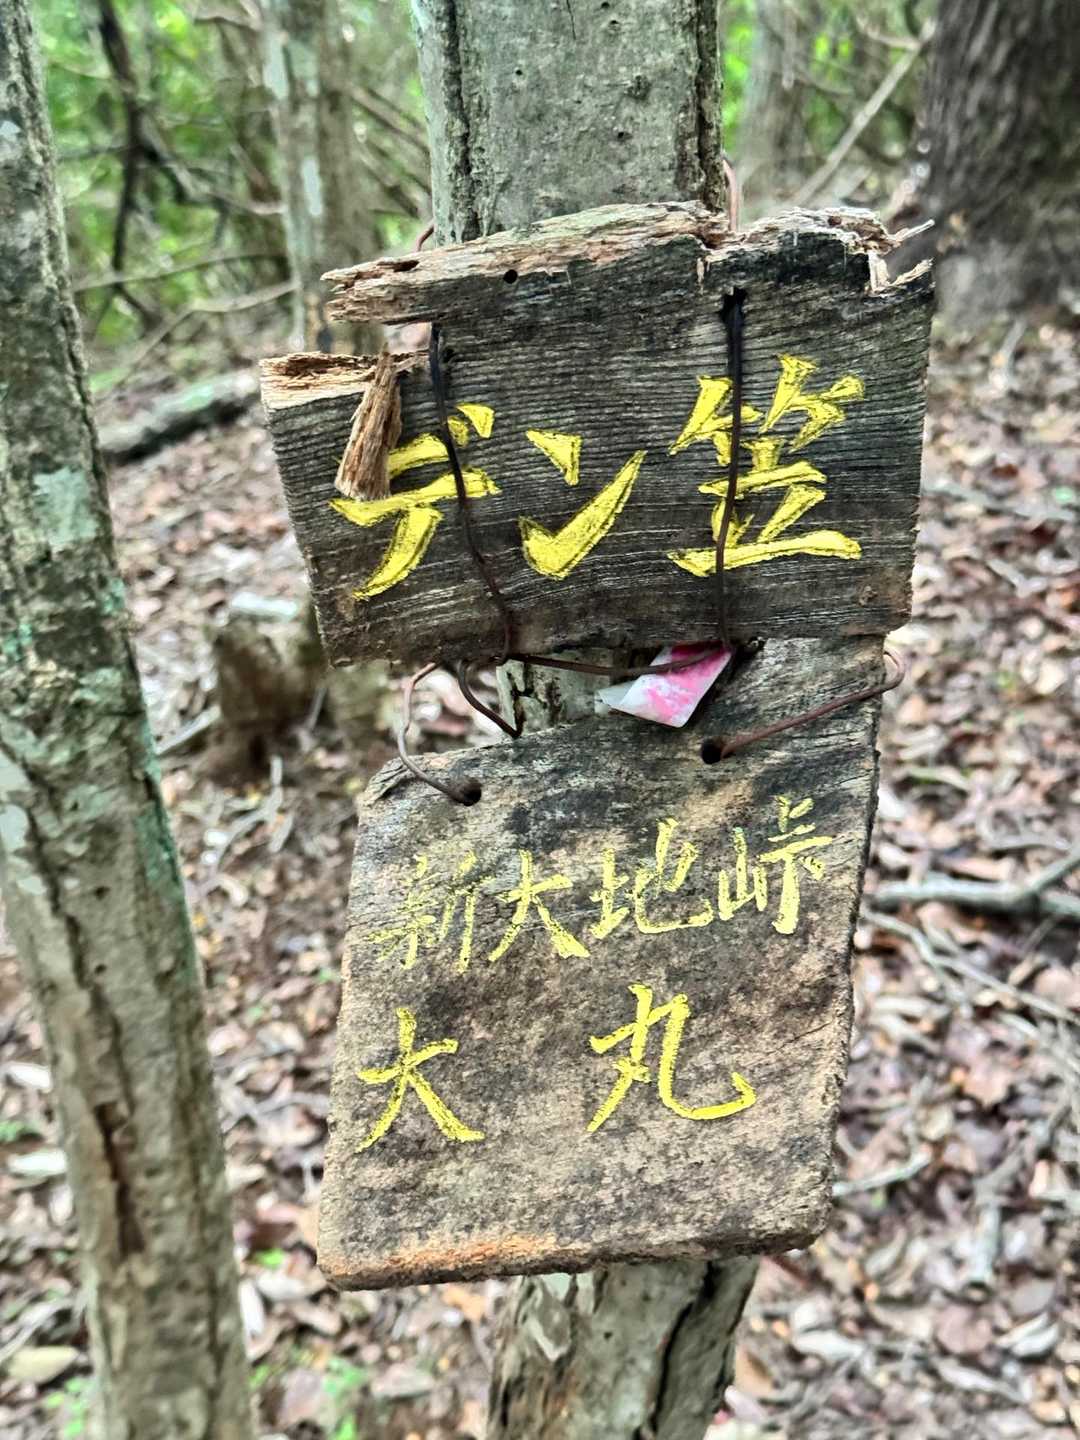 デン笠
新大地峠
大丸